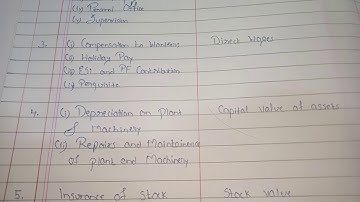 (iv) Personal Office
(v) Supervision
3. (i) Compensation to Workers Direct Wages
(ii) Holiday Pay
(iii) ESI and PF Contribution
(iv) Perquisite
4. (i) Depreciation on Plant Capital value of assets
& Machinery
(ii) Repairs and Maintainence
of plant and Machinery
5. Insurance of Stock Stock value